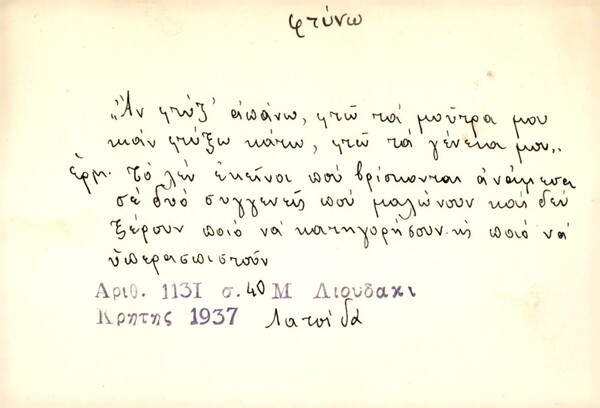 φτύνω
„Ἄν φτύξ' ἀπάνω, φτῶ τά μοῦτρα μου
κιἄν φτύξω κάτω, φτῶ τά γένεια μου„
ἑρμ. Τό λέν ἐκεῖνοι πού βρίσκονται ἀνάμεσα
σέ δυό συγγενεῖς πού μαλώνουν καί δέν
ξέρουν ποιό νά κατηγορήσουν κι ποιό νά
ὑπερασπιστοῦν
Αριθ. 1131 σ. 40 Μ Λιουδακι
Κρητης 1937 Λατσίδα